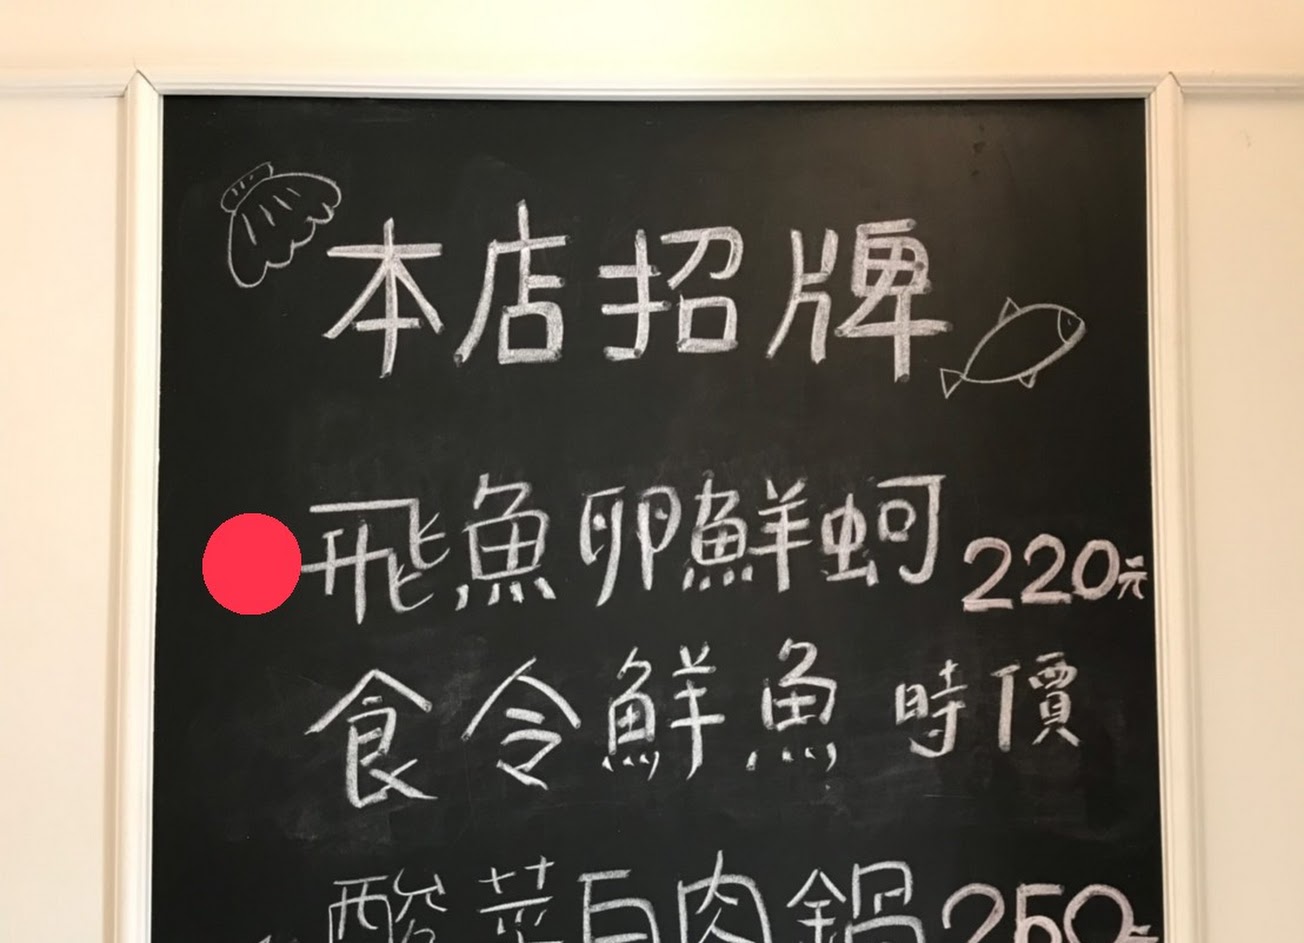 本店招牌
飛魚卵鮮蚵 220元
食令鮮魚 時價
酸菜白肉鍋 250元